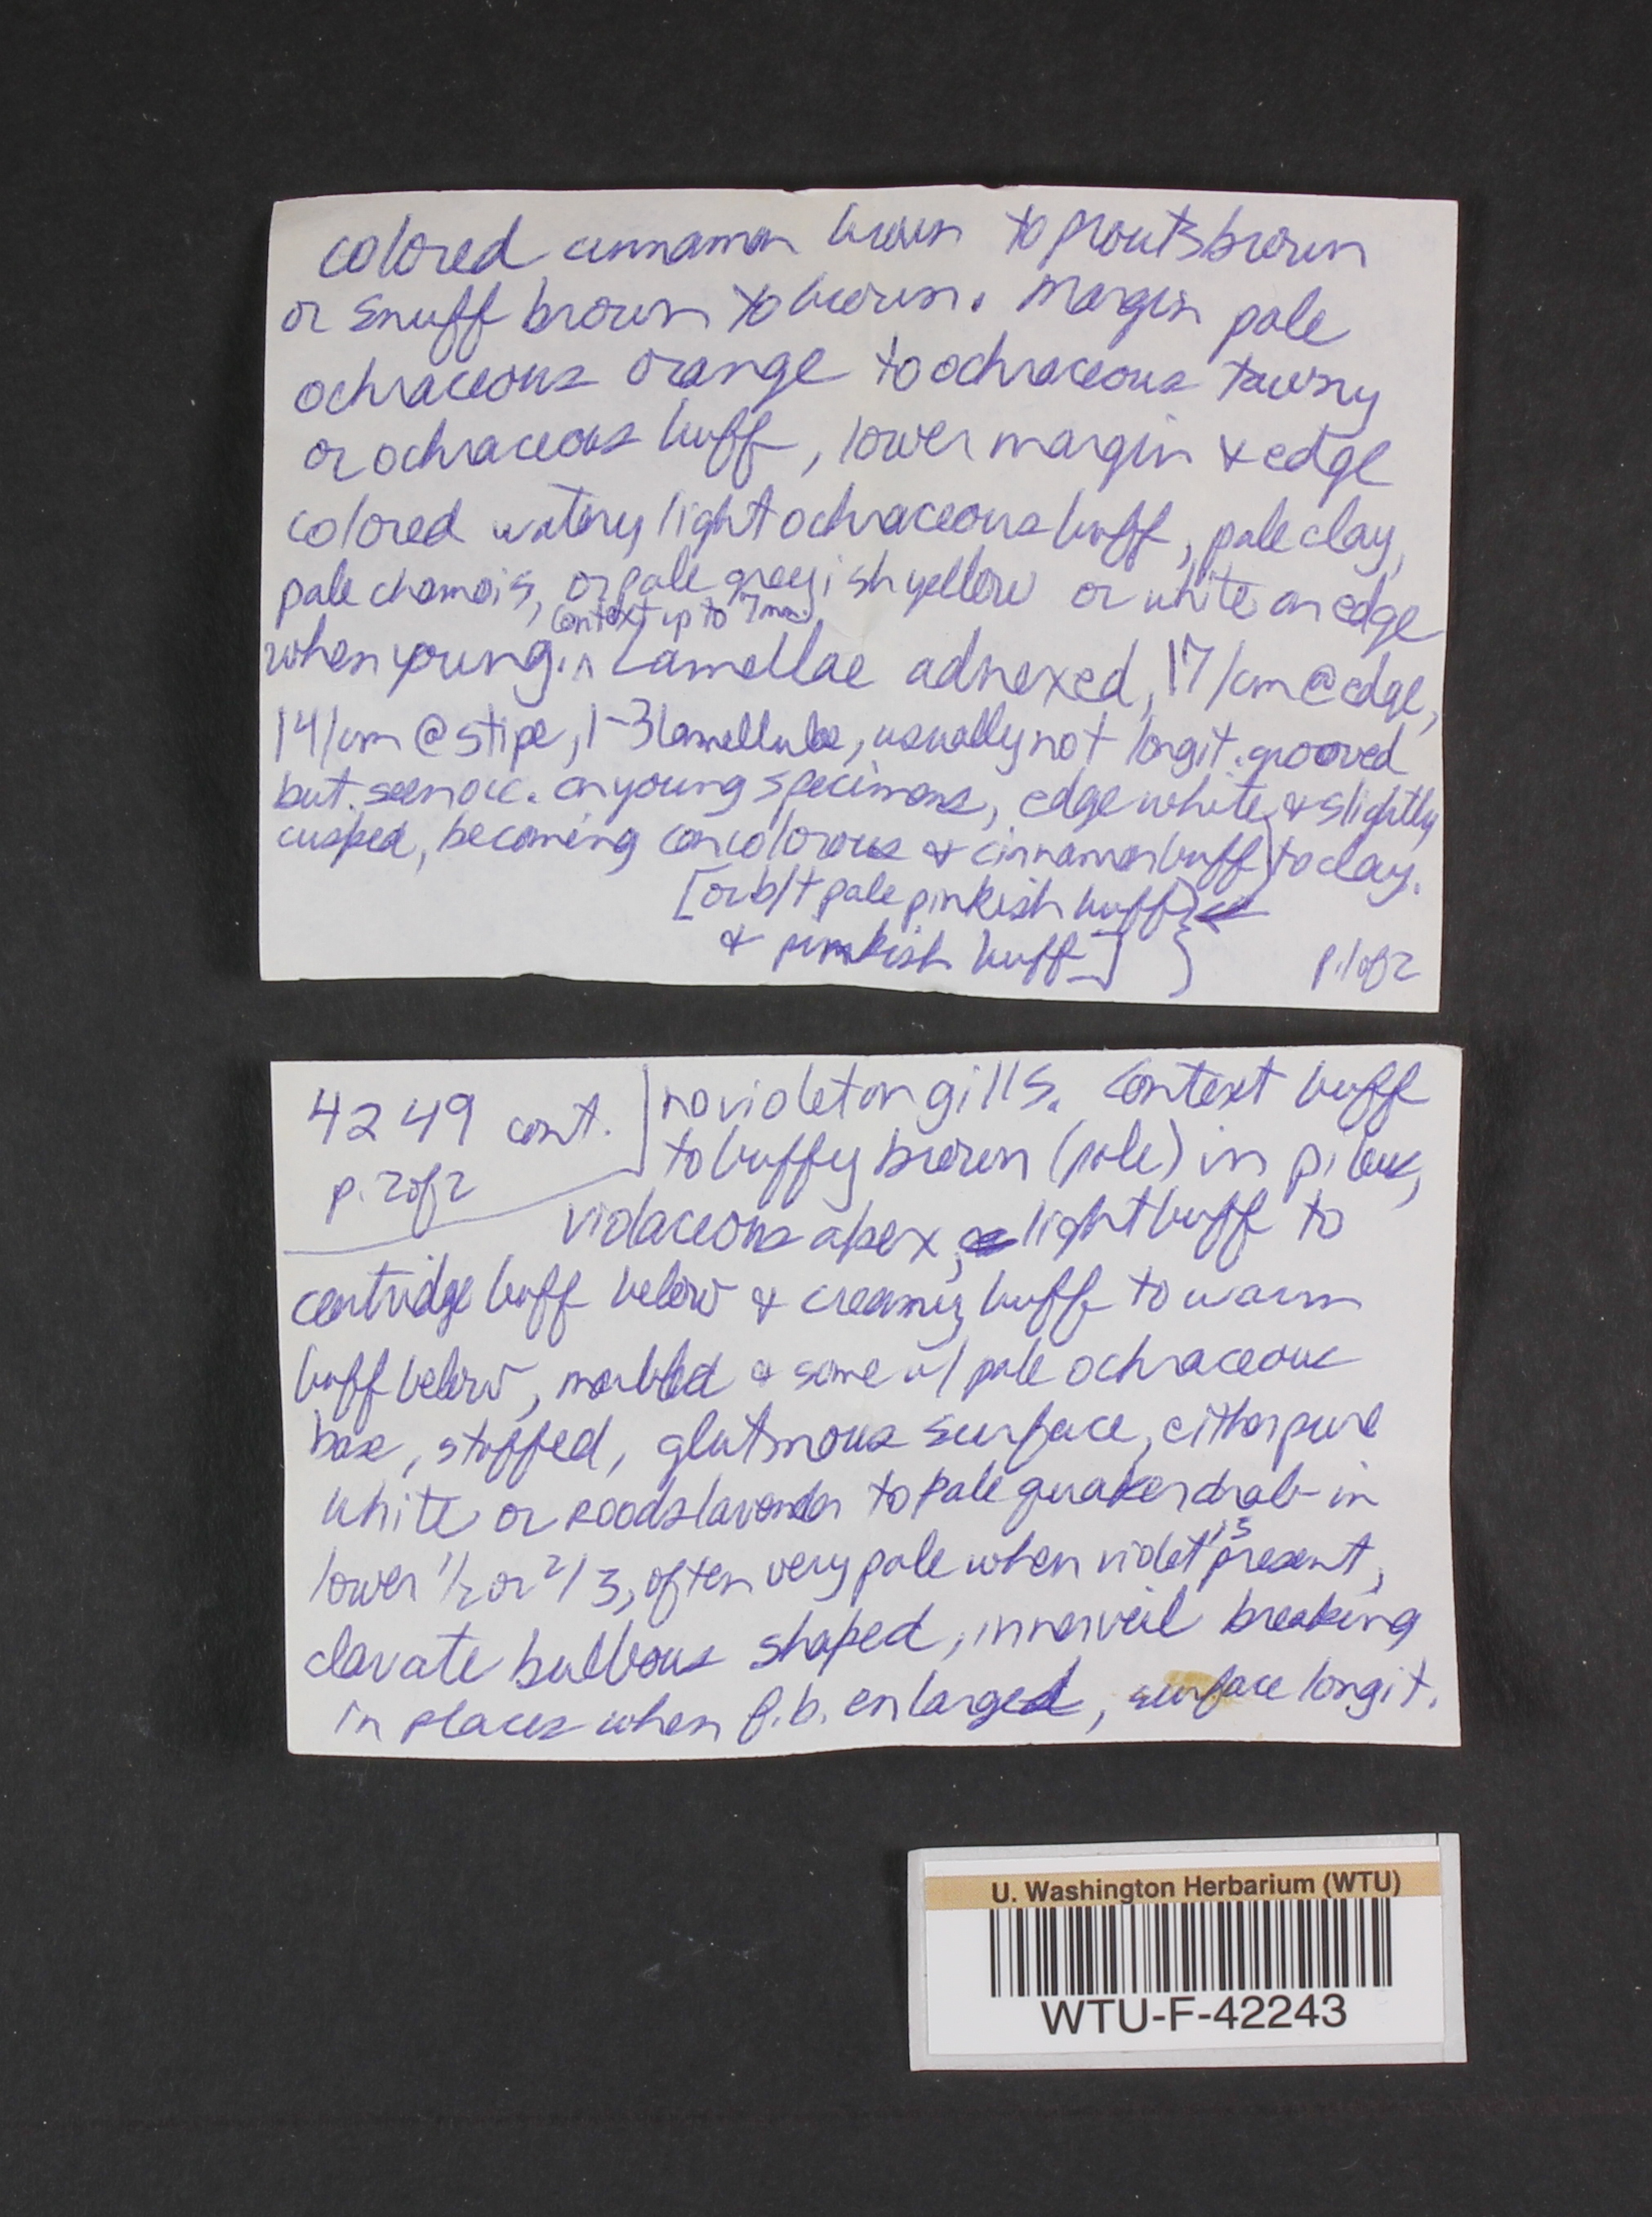 colored cinnamon brown to prouts brown
or snuff brown to brown. Margin pale
ochraceous orange to ochraceous tawny
or ochraceous buff, lower margin & edge
colored watery light ochraceous buff, pale clay,
pale chamois, or pale greyish yellow or white on edge
context up to 7mm.
when young. ^ Lamellae adnexed, 17/cm @ edge,
14/cm @ stipe, 1-3 lamellulae, usually not longit. grooved
but seen occ. on young specimens, edge white & slightly
cusped, becoming concolorous & cinnamon buff} to clay.
[or b/t pale pinkish buff}
& pinkish buff] }
p.1 of 2
4249 cont.
p. 2 of 2
no violet on gills. Context buff
to buffy brown (pale) in pileus,
violaceous apex, light buff to
cartridge buff below & creamy buff to warm
buff below, marbled & some w/ pale ochraceous
base, stuffed, glutinous surface, either pure
white or Roods lavender to pale quaker drab in
lower 1/2 or 2/3, often very pale when violet is present,
clavate bulbous shaped, inner veil breaking
in places when f.b. enlarged, surface longit.
U. Washington Herbarium (WTU)
WTU-F-42243